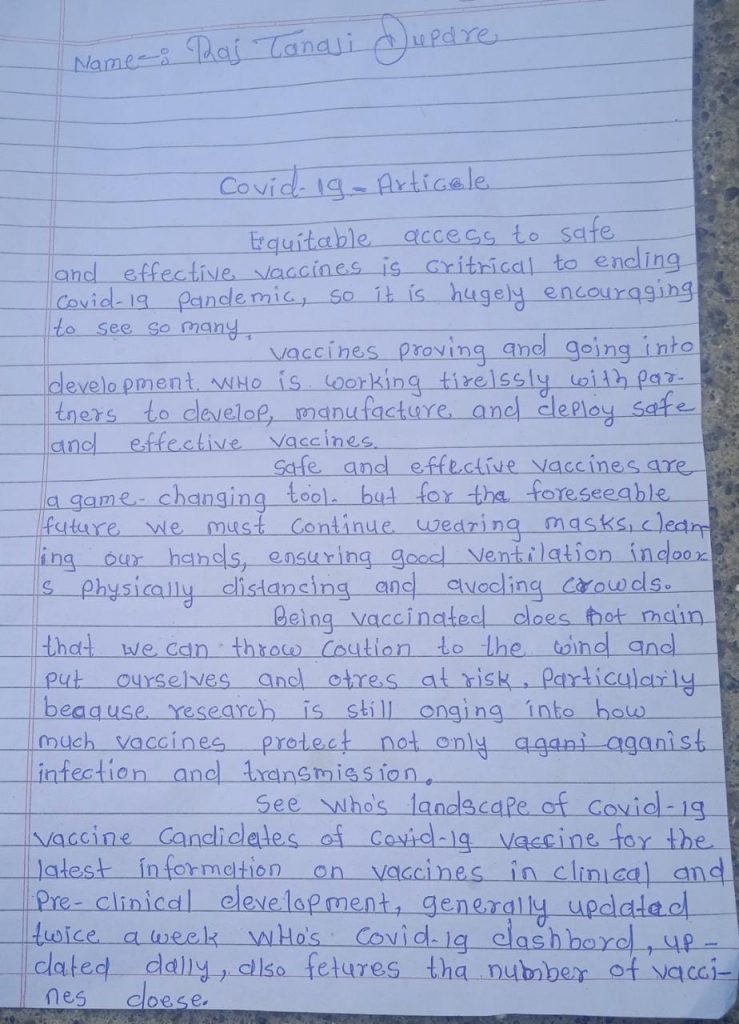 Name-: Raj Tanaji Dupare
Covid-19 - Articale
Equitable access to safe
and effective vaccines is critrical to ending
Covid-19 pandemic, so it is hugely encouraging
to see so many.
vaccines proving and going into
development. WHO is working tirelssly with par-
tners to develop, manufacture and deploy safe
and effective vaccines.
safe and effective vaccines are
a game- changing tool. but for tha foreseeable
future we must continue wearing masks, clean
ing our hands, ensuring good ventilation indoor
s physically distancing and avoding crowds.
Being vaccinated does not main
that we can throw coution to the wind and
put ourselves and otres at risk, particularily
beaquse research is still onging into how
much vaccines protect not only agani aganist
infection and transmission.
See who's landscape of covid-19
vaccine Candidates of covid-19 vaccine for the
latest information on vaccines in clinical and
Pre-clinical development, generally updated
twice a week WHO's Covid-19 dashbord, up-
dated dally, also fetures tha number of vacci-
nes doese.